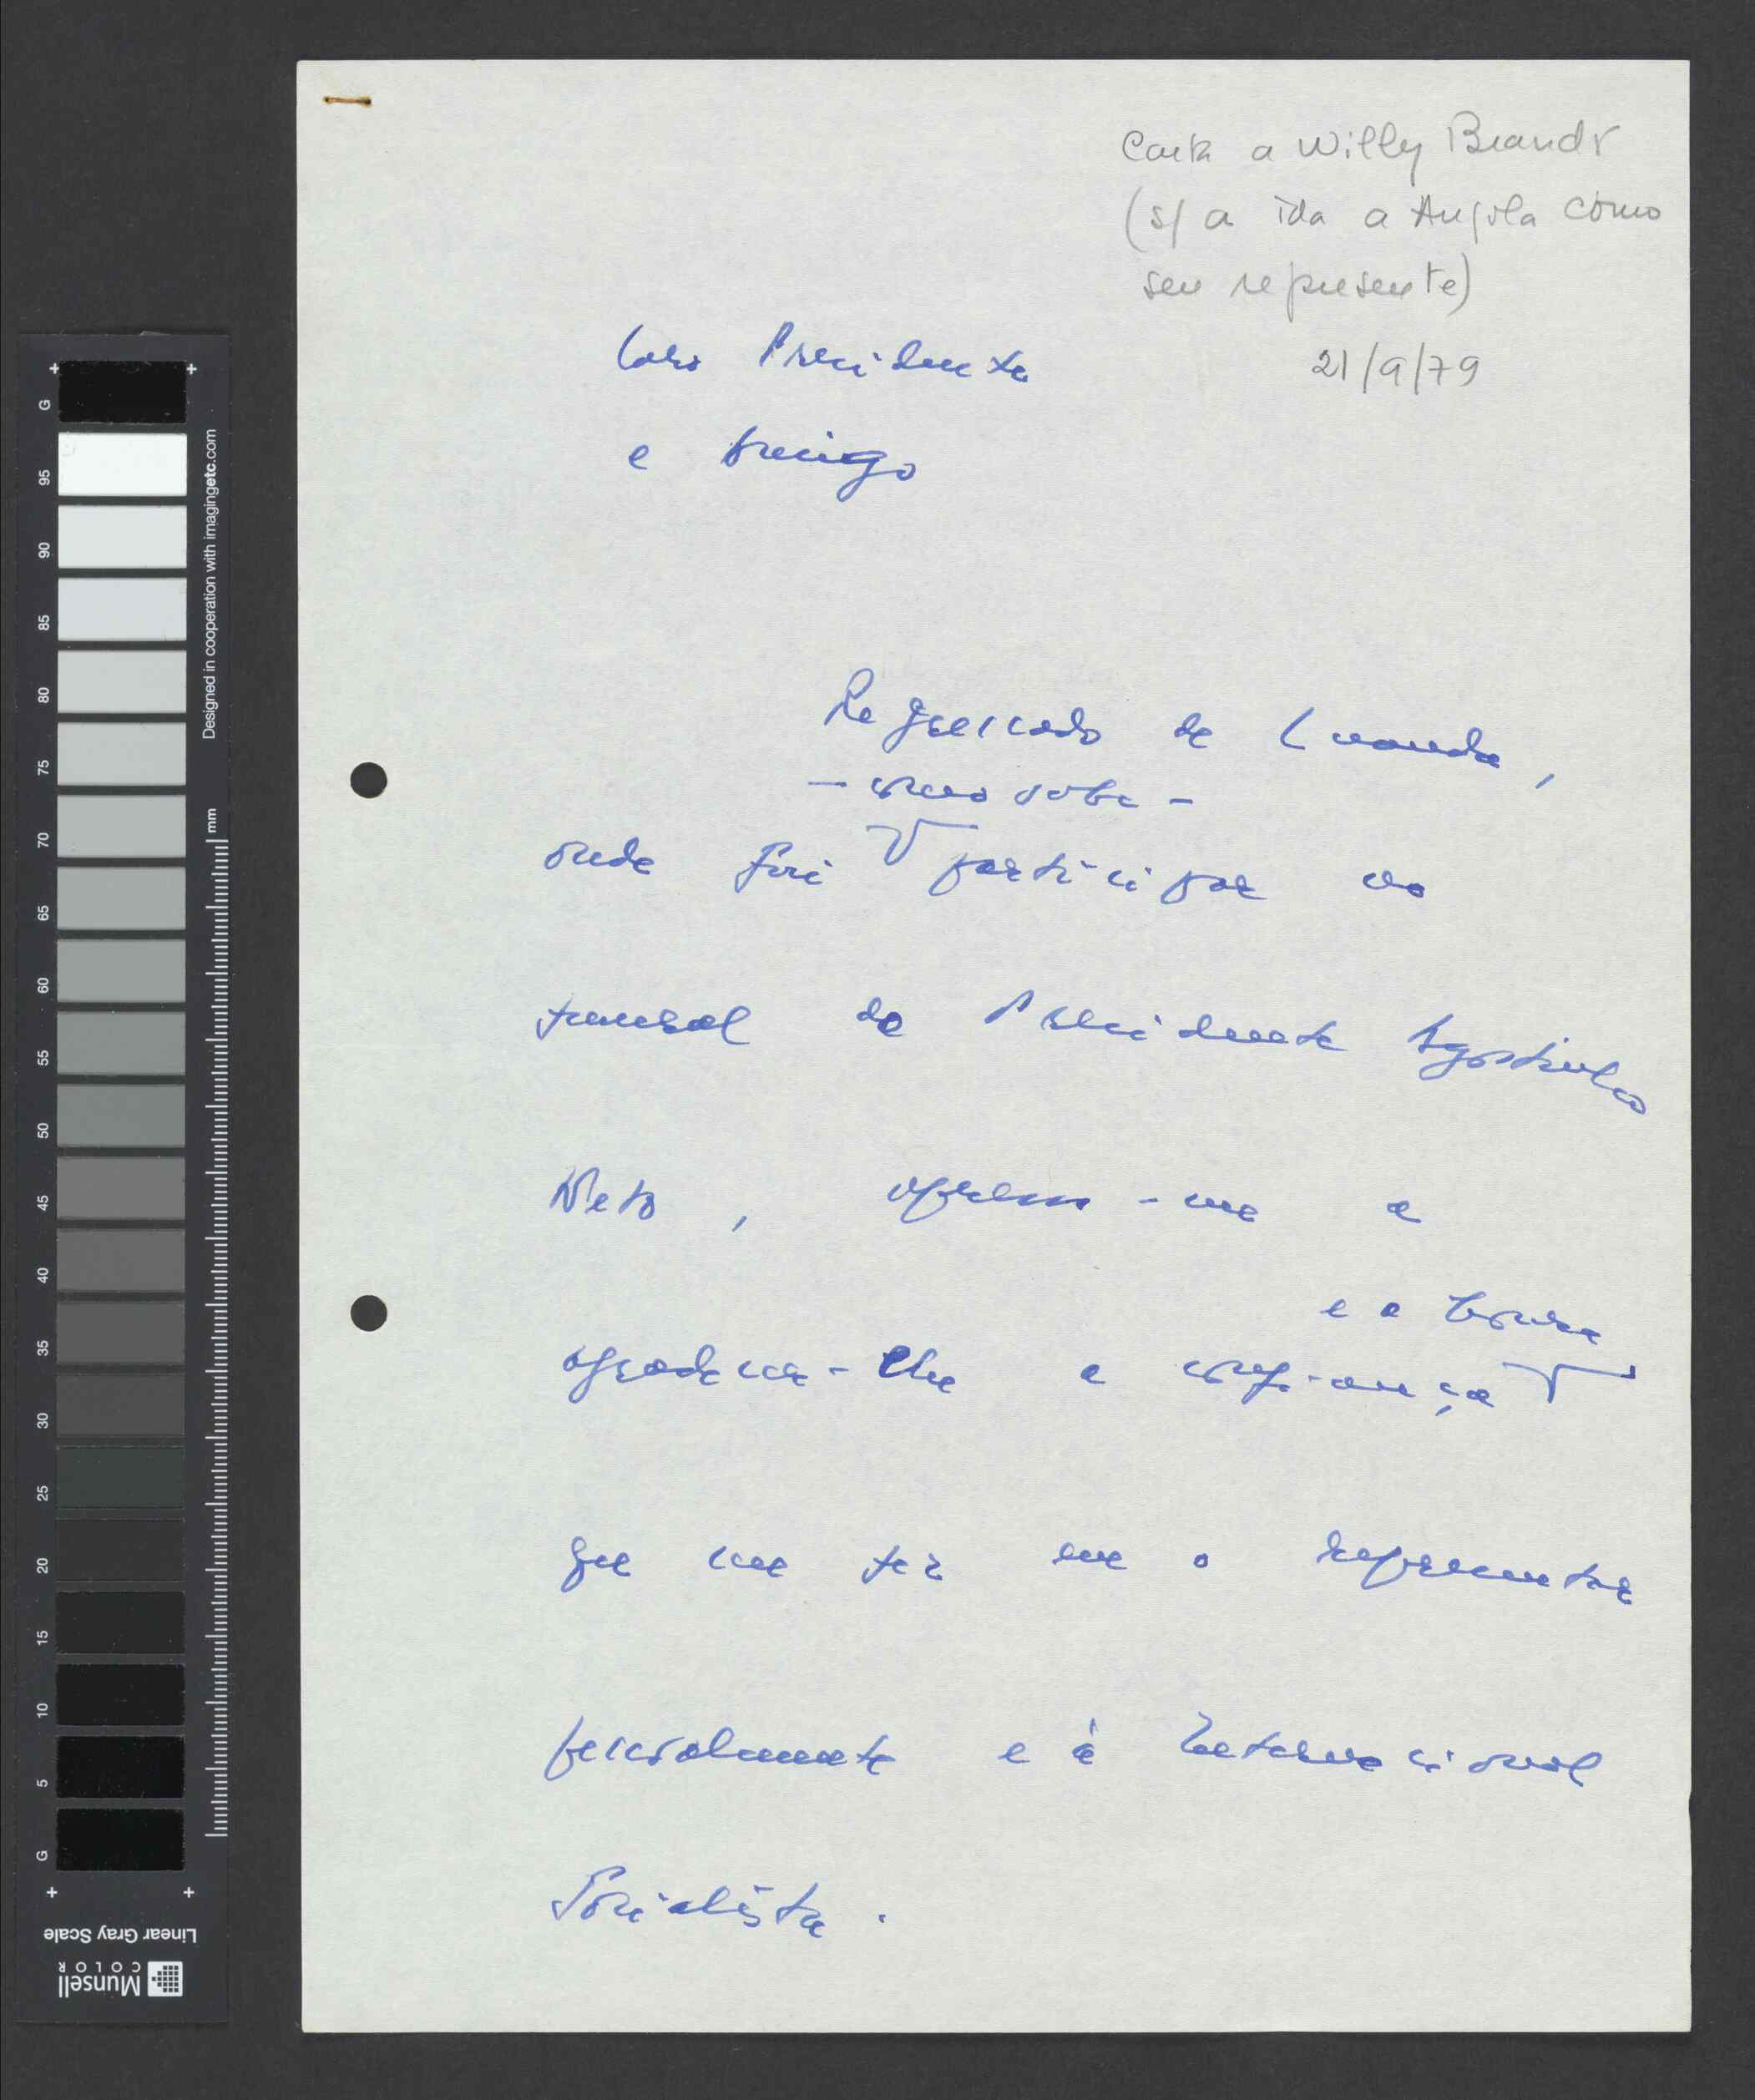 Carta a Willy Brandt
(s/ a ida a Angola como
seu represente)
21/9/79
Caro Presidente
e Amigo
Regressado de Luanda,
- como sabe -
onde fui participar no
funeral do Presidente Agostinho
Neto, apresso-me a
e a honra
agradecer-lhe a confiança
que me fez em o representar
pessoalmente e à Internacional
Socialista.
G
95
90
85
80
75
70
65
60
55
50
45
40
35
30
25
20
15
10
5
G
Designed in cooperation with imagingetc.com
mm
Linear Gray Scale
Munsell
COLOR